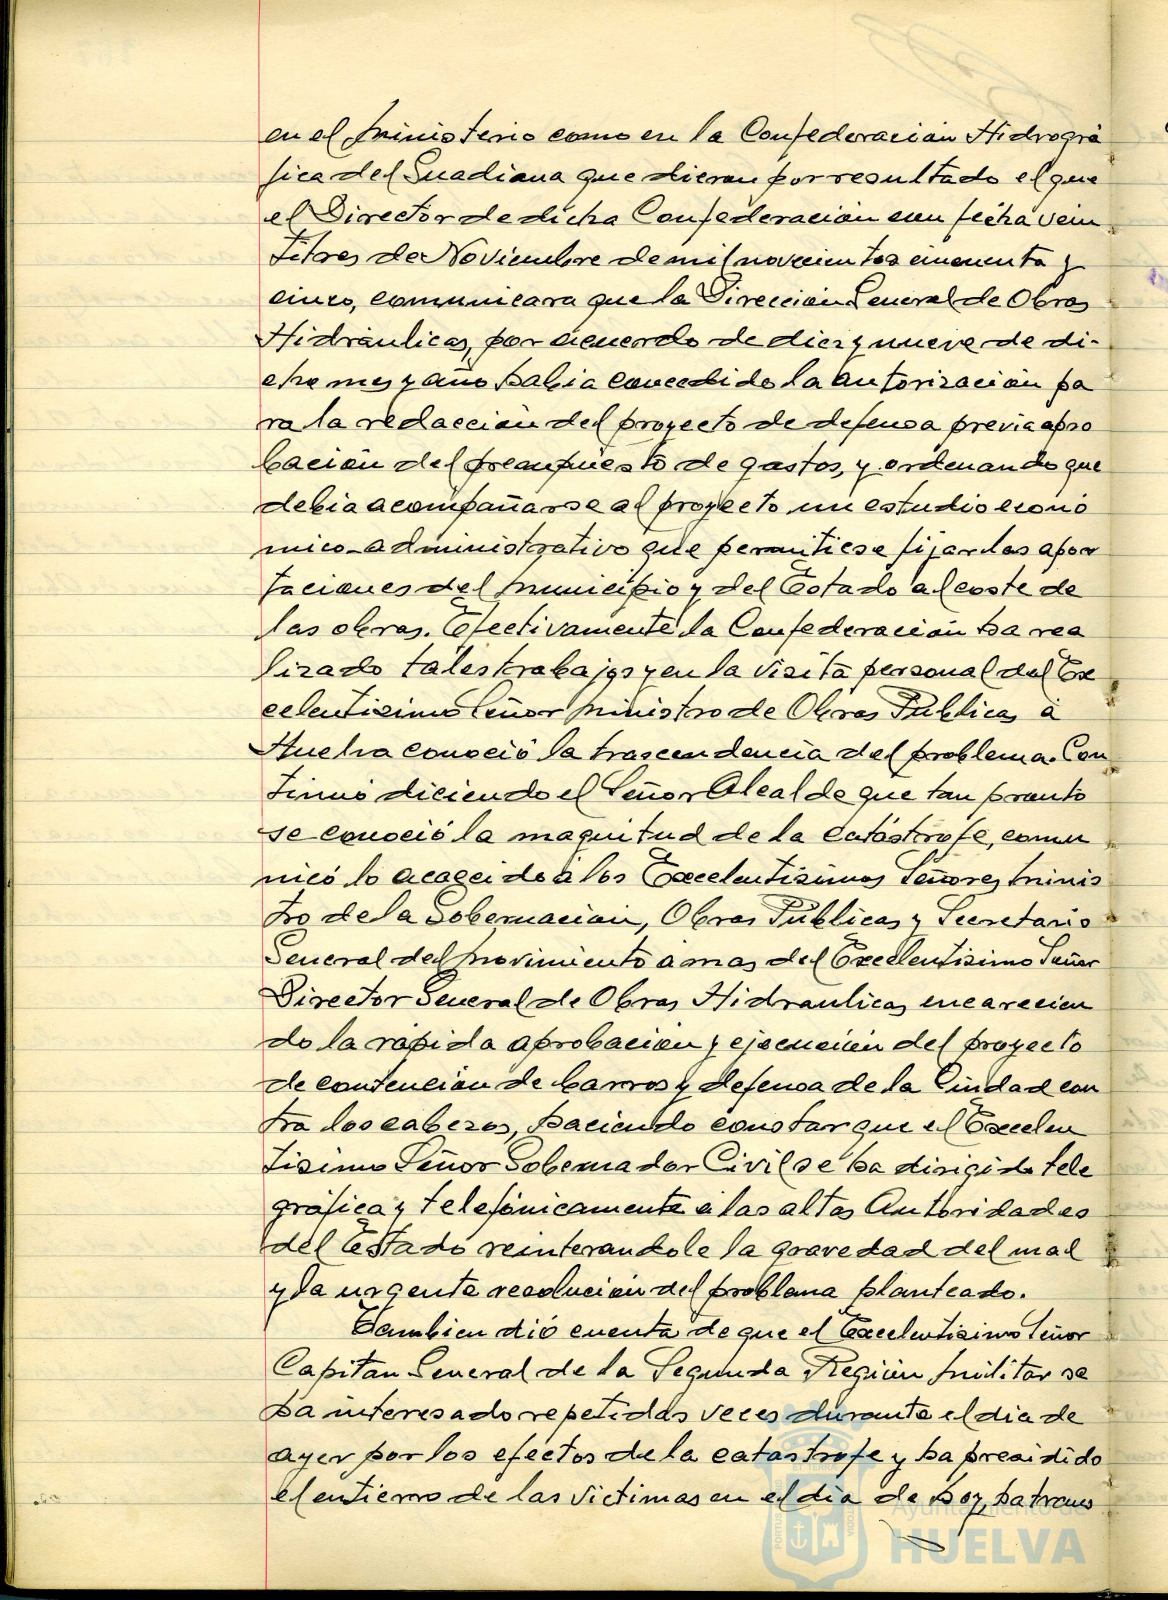 en el Ministerio como en la Confederación Hidrográ
fica del Guadiana que dieron por resultado el que
el Director de dicha Confederación con fecha vein
titres de Noviembre de mil novecientos cincuenta y
cinco, comunicara que la Dirección General de Obras
Hidráulicas, por acuerdo de diez y nueve de di-
cho mes y año había concedido la autorización pa
ra la redacción del proyecto de defensa previa apro
bación del presupuesto de gastos, y ordenando que
debia acompañarse al proyecto un estudio econó
mico-administrativo que permitiese fijar las apor
taciones del Municipio y del Estado al coste de
las obras. Efectivamente la Confederación ha rea
lizado tales trabajos y en la visita personal del Ex
celentisimo Señor Ministro de Obras Públicas á
Huelva conoció la trascendencia del problema. Con
tinuó diciendo el Señor Alcalde que tan pronto
se conoció la magnitud de la catástrofe, comu
nicó lo acaecido á los Excelentísimos Señores Minis
tro de la Gobernación, Obras Públicas y Secretario
General del Movimiento a mas del Excelentisimo Señor
Director General de Obras Hidraulicas encarecien
do la rápida aprobación y ejecución del proyecto
de contención de barros y defensa de la Ciudad con
tra los cabezos, haciendo constar que el Excelen
tisimo Señor Gobernador Civil se ha dirigido tele
gráfica y telefónicamente a las altas Autoridades
del Estado reinterandole la gravedad del mal
y la urgente resolución del problema planteado.
Tambien dió cuenta de que el Excelentisimo Señor
Capitan General de la Segunda Región Militar se
ha interesado repetidas veces durante el dia de
ayer por los efectos de la catastrofe y ha presidido
el entierro de las victimas en el dia de hoy, ha trans
Ayuntamiento de
HUELVA